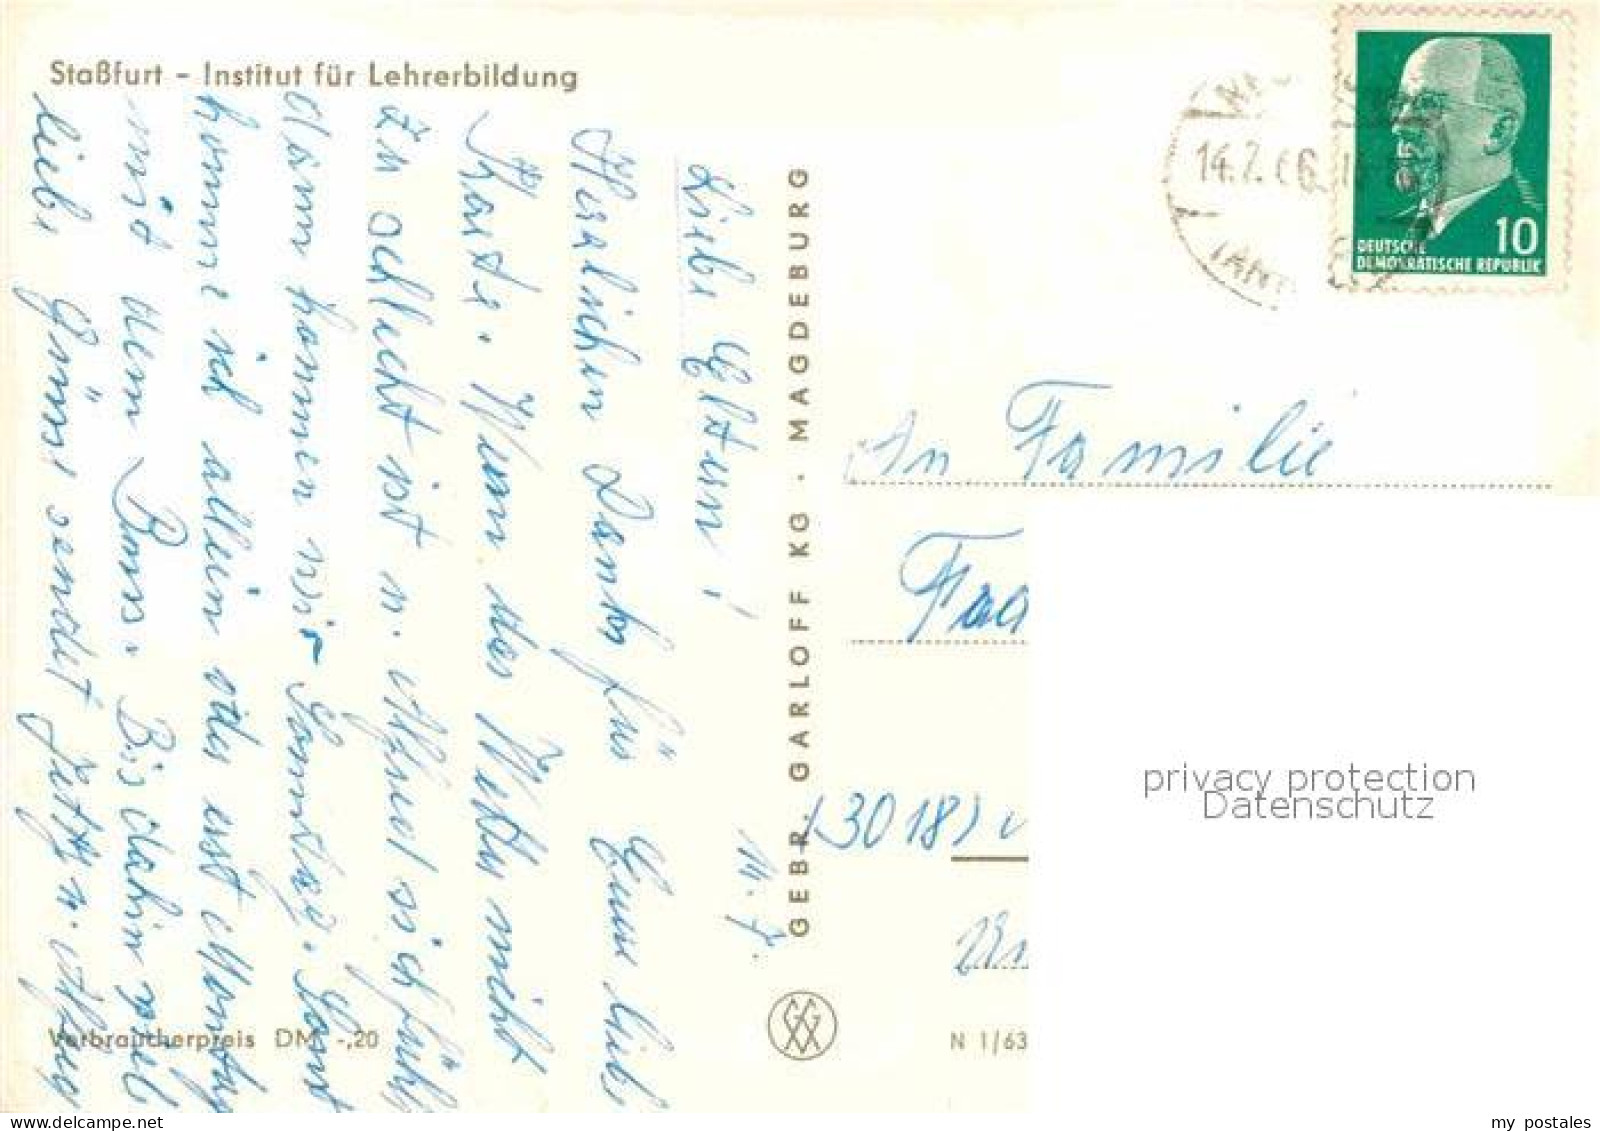 Staßfurt - Institut für Lehrerbildung
14.7.
Liebe Eltern!
Herzlichen Dank für Eure liebe
Karte. Wenn das Wetter nicht
zu schlecht ist u. Alfred sich fühlt
dann kommen wir Sonntag. Sonst
komme ich allein oder erst Montag
mit dem Bus. Bis dahin viel
liebe Grüße sendet u.
Verbraucherpreis DM -,20
GEBR. GARLOFF KG · MAGDEBURG
N 1/63
14.7.66
DEUTSCHE
DEMOKRATISCHE REPUBLIK
10
An Familie
(3018)
privacy protection
Datenschutz
my postales